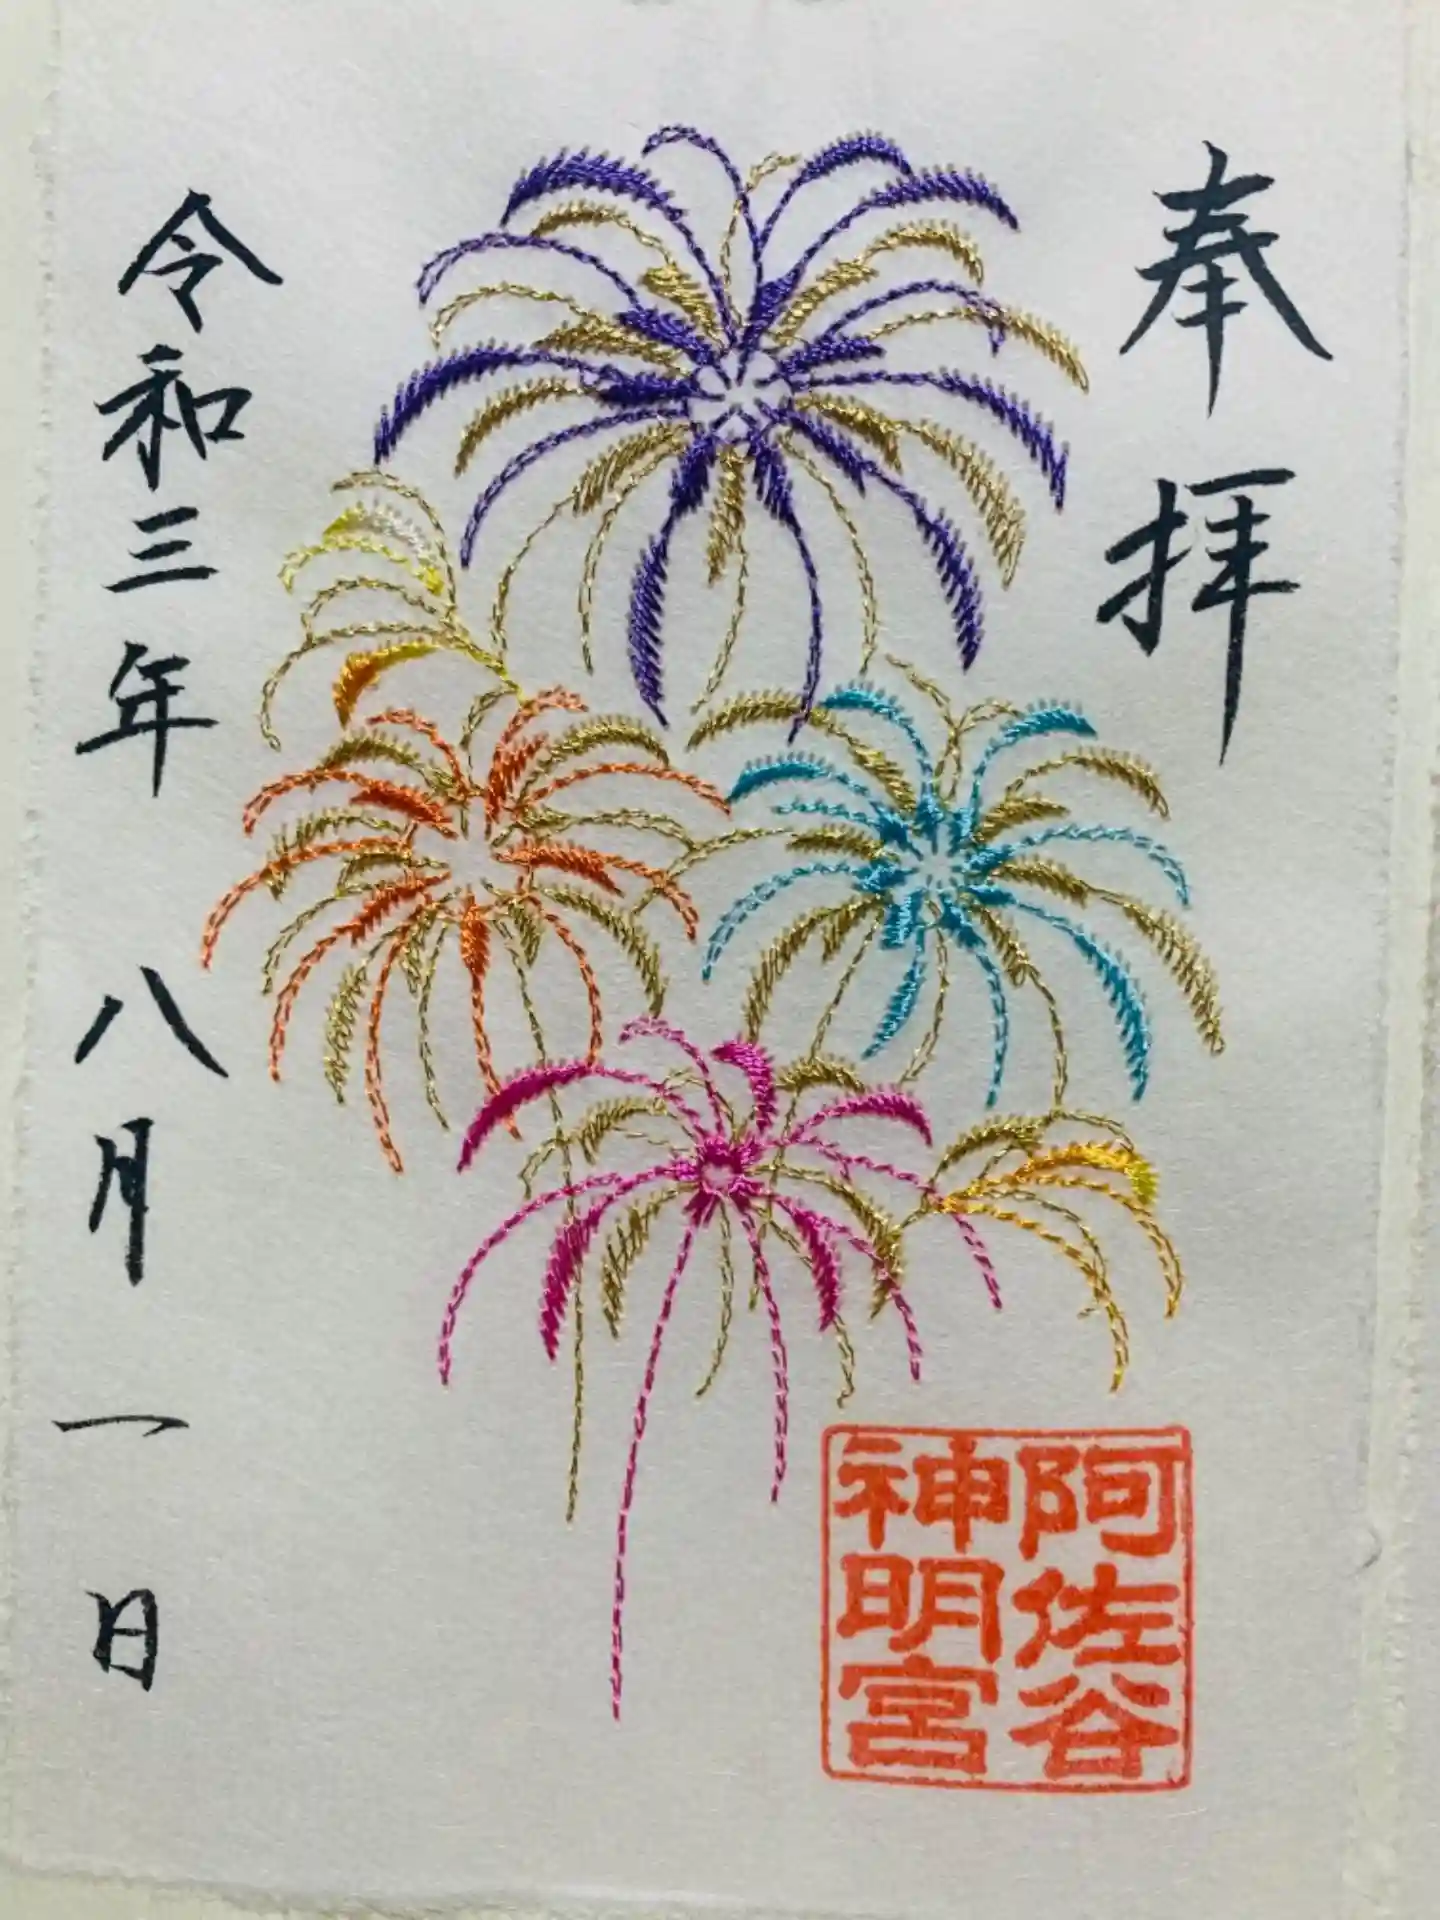 奉拝
阿佐谷
神明宮
令和三年八月一日